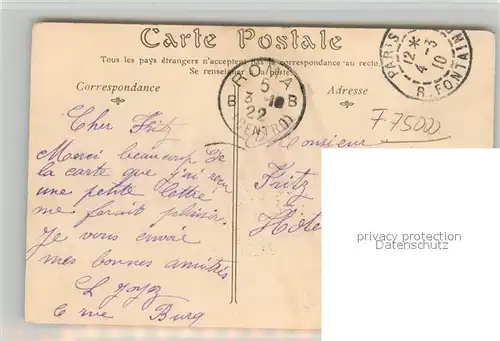 Carte Postale
Tous les pays étrangers n'acceptent pas la correspondance au recto.
Se renseigner à la poste.
Correspondance
Adresse
ROMA
5
3-10
B B
22
(CENTRO)
PARIS
12*
4-3
10
R. FONTAINE
F 75000
Cher Fritz
Merci beaucoup de
la carte que j'ai reçu
une petite lettre
me ferait plaisir.
Je vous envoie
mes bonnes amitiés
Burq
Monsieur
Fritz
Hôte
privacy protection
Datenschutz